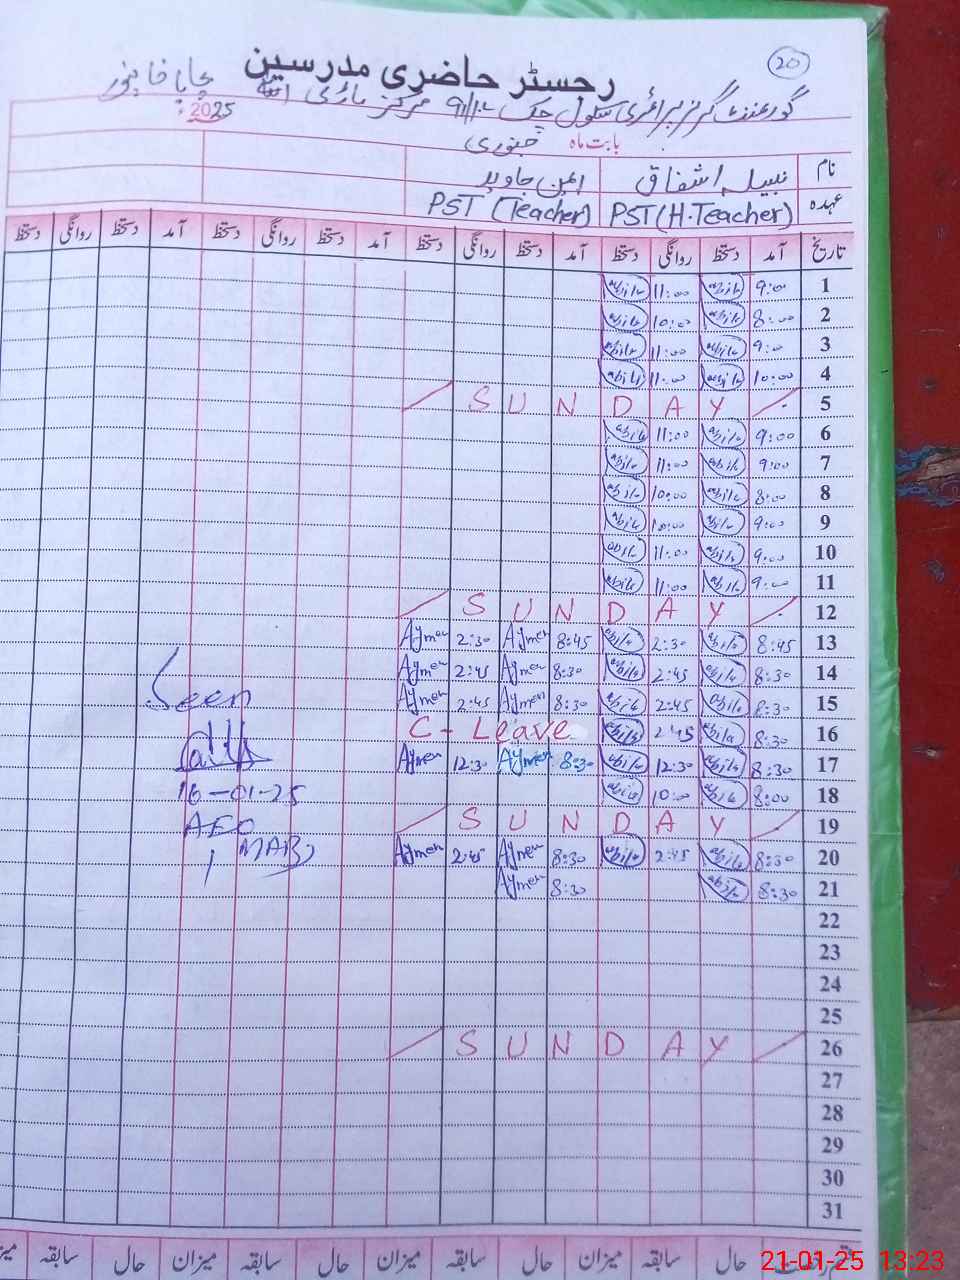 20
رجسٹر حاضری مدرسین
گورنمنٹ گرلز پرائمری سکول چک 91/10 مرکز ماڑی
2025
بابت ماہ جنوری
نام نبیلہ اشفاق ایمن جاوید
عہدہ PST (H.Teacher) PST (Teacher)
تاریخ آمد دستخط روانگی دستخط آمد دستخط روانگی دستخط آمد دستخط روانگی دستخط آمد دستخط روانگی دستخط
1 9:00 11:00
2 8:00 10:00
3 9:00 11:00
4 10:00 11:00
5 S U N D A Y
6 9:00 11:00
7 9:00 11:00
8 8:00 10:00
9 9:00 10:00
10 9:00 11:00
11 9:00 11:00
12 S U N D A Y
13 8:45 2:30 8:45 Aymen 2:30 Aymen
14 8:30 2:45 8:30 Aymen 2:45 Aymen
15 8:30 2:45 8:30 Aymen 2:45 Aymen
16 8:30 2:45 C - Leave
17 8:30 12:30 8:30 Aymen 12:30 Aymen
18 8:00 10:00
19 S U N D A Y
20 8:30 2:45 8:30 Aymen 2:45 Aymen
21 8:30 8:30 Aymen
22
23
24
25
26 S U N D A Y
27
28
29
30
31
Seen
16-01-25
AEO
حال سابقہ میزان حال سابقہ میزان حال سابقہ میزان حال سابقہ
21-01-25 13:23